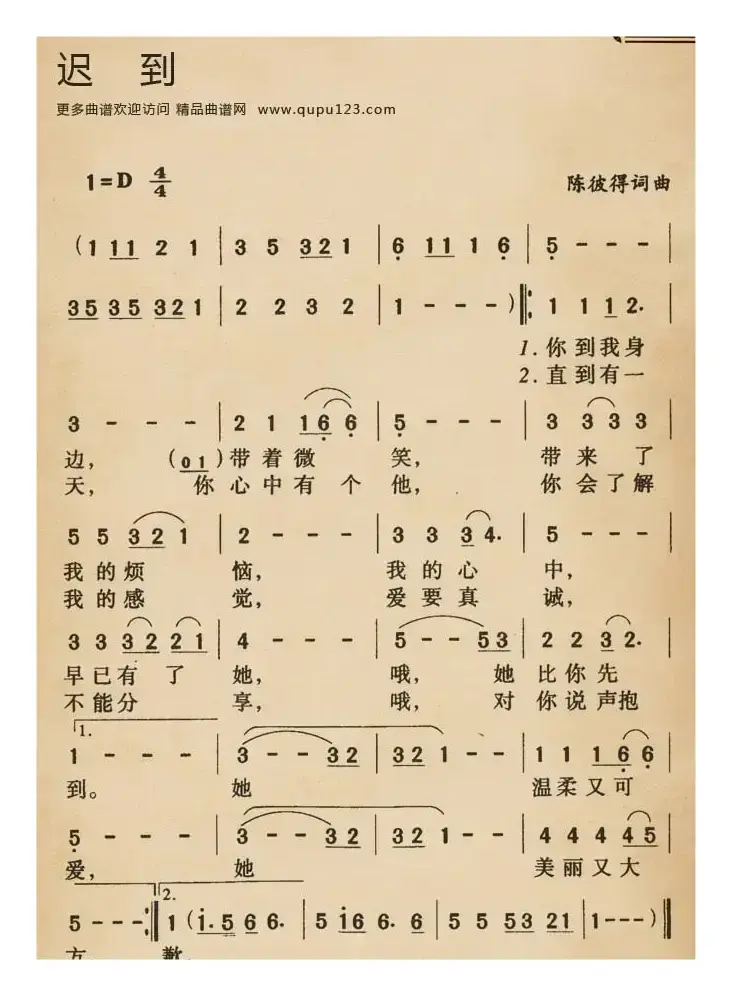 迟 到
更多曲谱欢迎访问 精品曲谱网 www.qupu123.com
1=D 4/4 陈彼得词曲
(1 11 2 1 | 3 5 321 | 6 11 1 6 | 5 - - - |
35 35 321 | 2 2 3 2 | 1 - - - ) |: 1 1 1 2. |
1.你到我身
2.直到有一
3 - - - | 2 1 166 | 5 - - - | 3 3 3 3 |
边, (01)带着微 笑, 带来了
天, 你心中有个他, 你会了解
5 5 321 | 2 - - - | 3 3 3 4. | 5 - - - |
我的烦 恼, 我的心 中,
我的感 觉, 爱要真 诚,
3 3 32 21 | 4 - - - | 5 - - 53 | 2 2 3 2. |
早已有了她, 哦, 她比你先
不能分 享, 哦, 对你说声抱
1.
1 - - - | 3 - - 32 | 32 1 - - | 1 1 166 |
到。 她 温柔又可
5 - - - | 3 - - 32 | 32 1 - - | 4 4 4 45 |
爱, 她 美丽又大
2.
5 - - - :| 1 (1. 5 6 6. | 5 16 6. 6 | 5 5 53 21 | 1 - - - ) ||
方 歉.